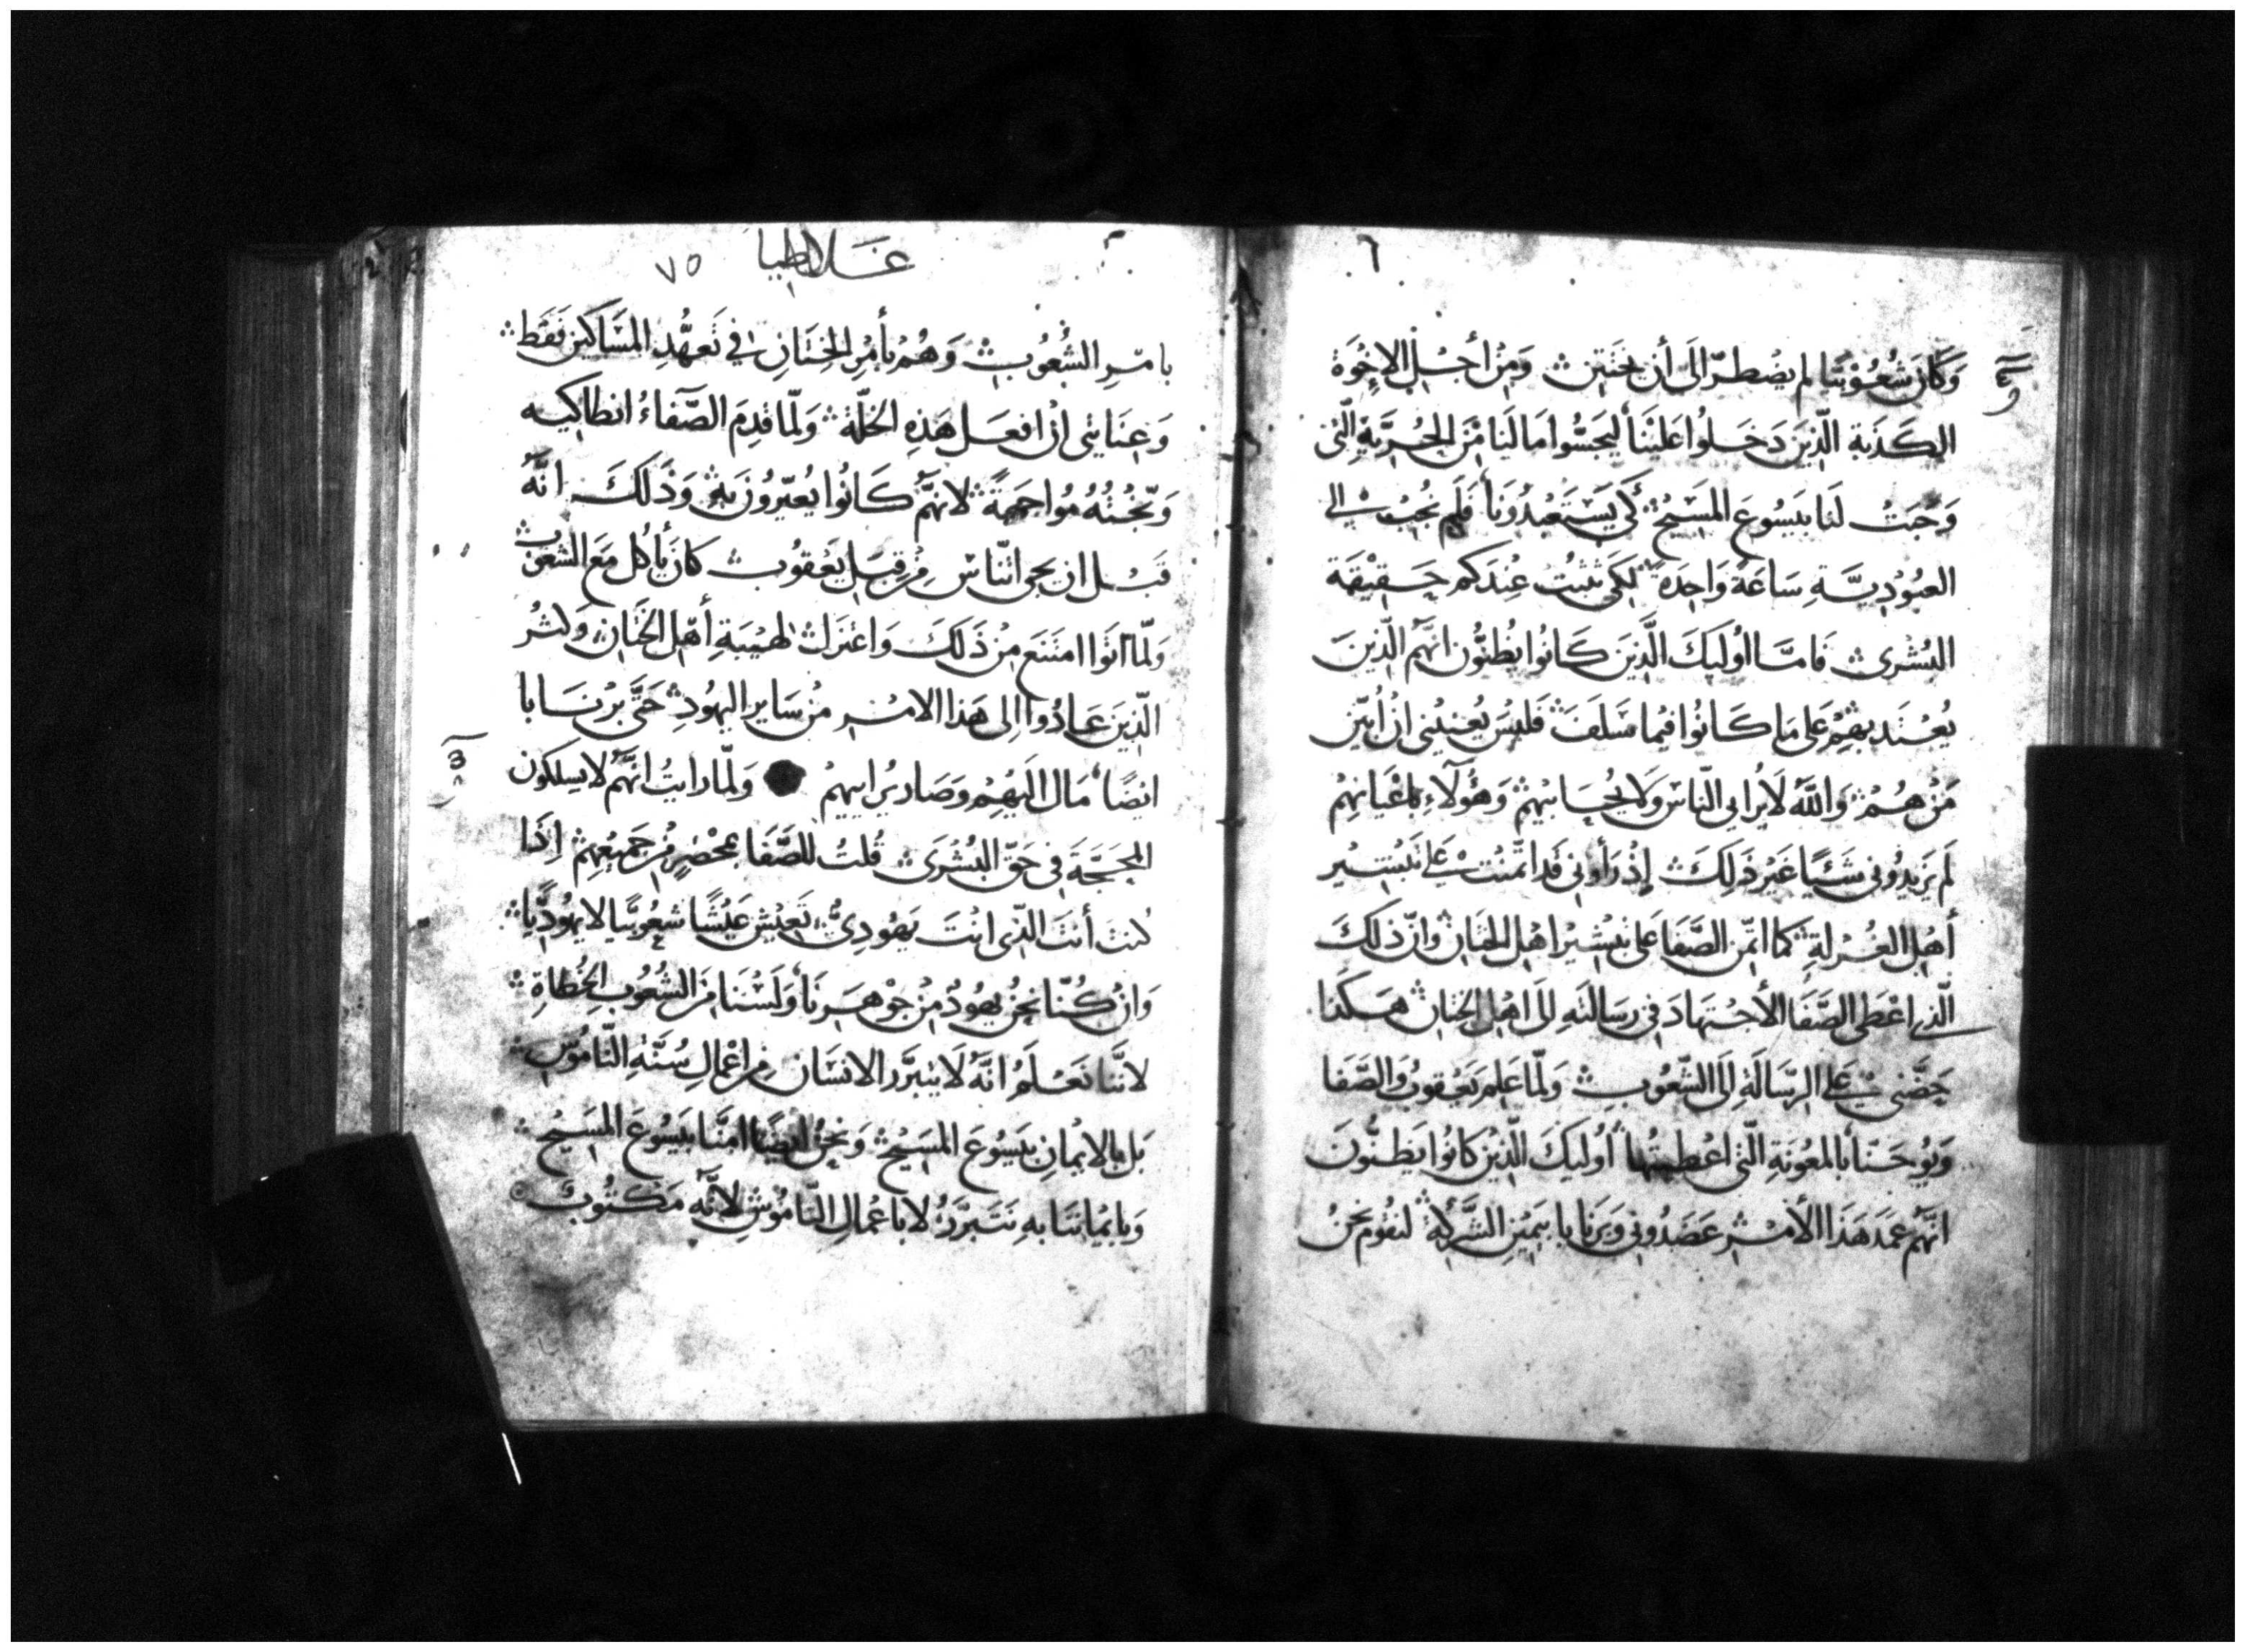 وَكَانَ شُعُوْبيًّا لم يضْطرّ الَى أن يختَتِن ۞ وَمِنْ أجْلِ الإخْوَة
الكَذَبَةِ الّذِينَ دَخَلُوا عَلَيْنَا ليَجَسُّوا مَا لَنَا مِنَ الحُرِّيَّةِ الّتى
وَجَبَتْ لَنَا بيَسُوعَ المَسِيْحِ كَى يَسْتَعْبِدُونَا فَلَم نُجِبْ الى
العبُوْدِيَّةِ سَاعَةً وَاحِدَةً لِكَى تثبتُ عِنْدَكم حَقِيْقَة
البُشْرى فَامَّا اوُليكَ الَّذِينَ كَانُوا يُظنُّون انهَّم الّذِينَ
يُعْتَد بهِمْ عَلى مَا كَانُوا فيمَا سَلَفَ فَليْسَ يُعنينى انْ أبيّن
مَنْ هُمْ وَاللَّه لَا يُرايى النّاس وَلَا يُحَابيْهِمْ وَهَؤُلآءِ باعْيَانِهِمْ
لَم يَزيدُونى شَئيًا غَيْرَ ذَلِكَ إذْ رَأونى قَد اتمنتُ عَلى تَبْشِيْر
أهْلِ الغُرْلَةِ كما اتمِن الصَّفَا عَلى تَبْشِيْر اهْلِ الختَان وَانّ ذَلكَ
الّذى اعْطَى الصَّفَا الأجْتهَادَ فى رسَالَتهِ الَى اهْلِ الختَان هَكَذا
حَضَّنى عَلى الرسَّالَةِ الَى الشُّعُوبِ وَلَمّا عَلِمَ يَعْقوبُ وَالصَّفَا
وَيُوحَنّا بالمعُونَةِ الّتى اعْطيتُها اوُليكَ الّذينَ كانُوا يَظنُّونَ
انهَّم عَمَدَ هَذَا الأمْرِ عَضَدُونى وَبَرنَابا بيَمِيْن الشَّركَةِ لنقُوم نحنُ
غلاطيا ٧٥
بامْرِ الشُّعُوبِ وَهُمْ بأمْرِ الختَانِ فى تَعهُّدِ المسَاكين فَقَط
وَعِنَايتى انْ افعَل هَذِهِ الخلّة وَلَمّا قدِمَ الصَّفاءُ انطاكيه
وَبّخْتُهُ مُواجَهَةً لانهَّم كَانُوا يُعيّرُونَ بهِ وَذَلكَ انَّهُ
قَبْل ان يجى اناس مِن قِبَل يَعْقوُب كانَ يأكل مَع الشعُوب
وَلَمّا اتوَا امتَنَع مِنْ ذَلكَ وَاعْتزَل لهَيْبَةِ أهْلِ الختَان وَكثرُ
الّذِينَ عَادُوا الى هَذا الامْر مِنْ سَايرِ اليهُودِ حَتَّى بَرْنَابا
ايْضًا مَال اليَهِمْ وَصَار برُاييهِم وَلَمّا رايتُ انهَّم لا يسلكون
المحجَّةَ فى حَقّ البُشْرَى قُلتُ للصَّفَا بمَحْضَرٍ مِنْ جَميْعِهِمْ اِذَا
كُنتَ أنتَ الّذى انْتَ يَهُودِىٌّ تَعيْش عَيْشًا شعُوبيًّا لا يهُودِّيًا
وَانْ كُنّا نَحنُ يهُودٌ مِنْ جَوْهَرنَا وَلَسْنَا مِنَ الشُّعُوبِ الخُطاةِ
لانّنَا نَعْلَمُ انَّهُ لَا يتَبرَّر الانسَان مِن اعْمالِ سُنَّةِ النّامُوسِ
بَل بالايْمانِ بيَسُوعَ المسَيْحِ وَنحنُ ايضًا امنَّا بيَسُوعَ المسَيْحِ
وَبايْمانِنَا بهِ نَتَبرَّرُ لا باعْمالِ النّامُوسِ لانَّه مَكتُوبٌ